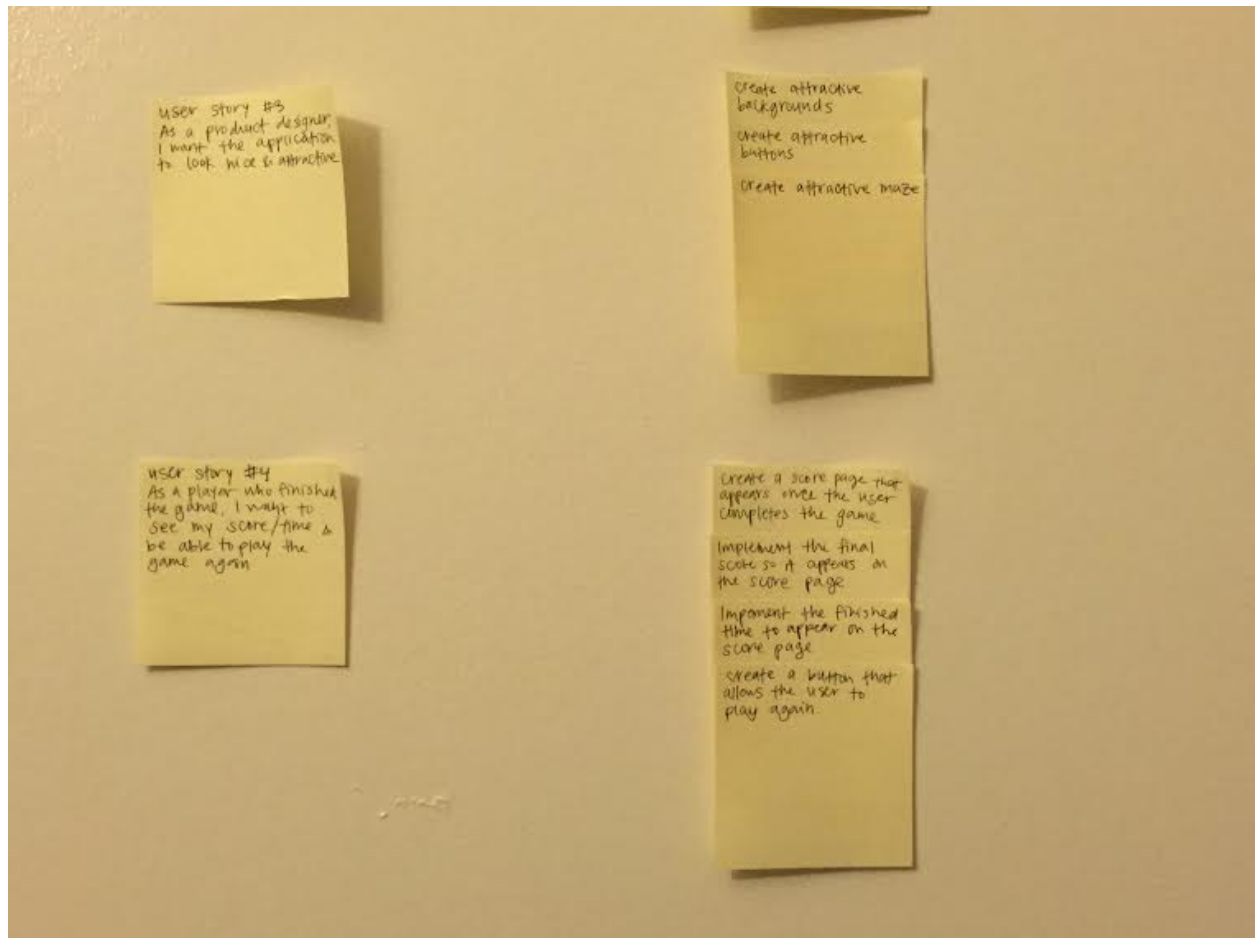 user story #3
As a product designer,
I want the application
to look nice & attractive
create attractive
backgrounds
create attractive
buttons
create attractive maze
user story #4
As a player who finished
the game, I want to
see my score/time &
be able to play the
game again
Create a score page that
appears once the user
completes the game
Implement the final
score so it appears on
the score page
Impement the finished
time to appear on the
score page
create a button that
allows the user to
play again.